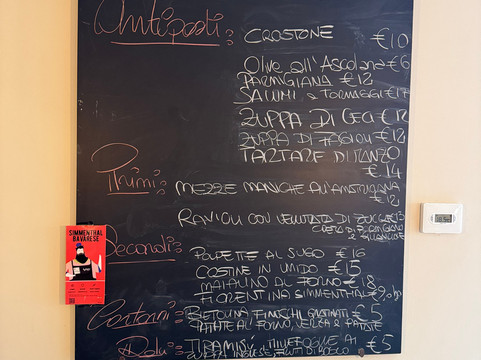 Antipasti: CROSTONE €10
Olive all'Ascolana €6
PARMIGIANA €12
SALUMI e FORMAGGI €17
ZUPPA DI CECI €12
ZUPPA DI FAGIOLI €12
TARTARE DI MANZO
€14
Primi: MEZZE MANICHE ALL'AMATRIGIANA
€12
RAVIOLI CON VELLUTATA DI ZUCCA
SIMMENTHAL
BAVARESE
Secondi: POLPETTE AL SUGO €16
COSTINE IN UMIDO €15
MAIALINO AL FORNO €18
FIORENTINA SIMMENTHAL
Contorni: FINOCCHI GRATINATI €5
PATATE AL FORNO, VERZA e PATATE
Dolci: TIRAMISÙ, MILLEFOGLIE €5
ZUPPA INGLESE